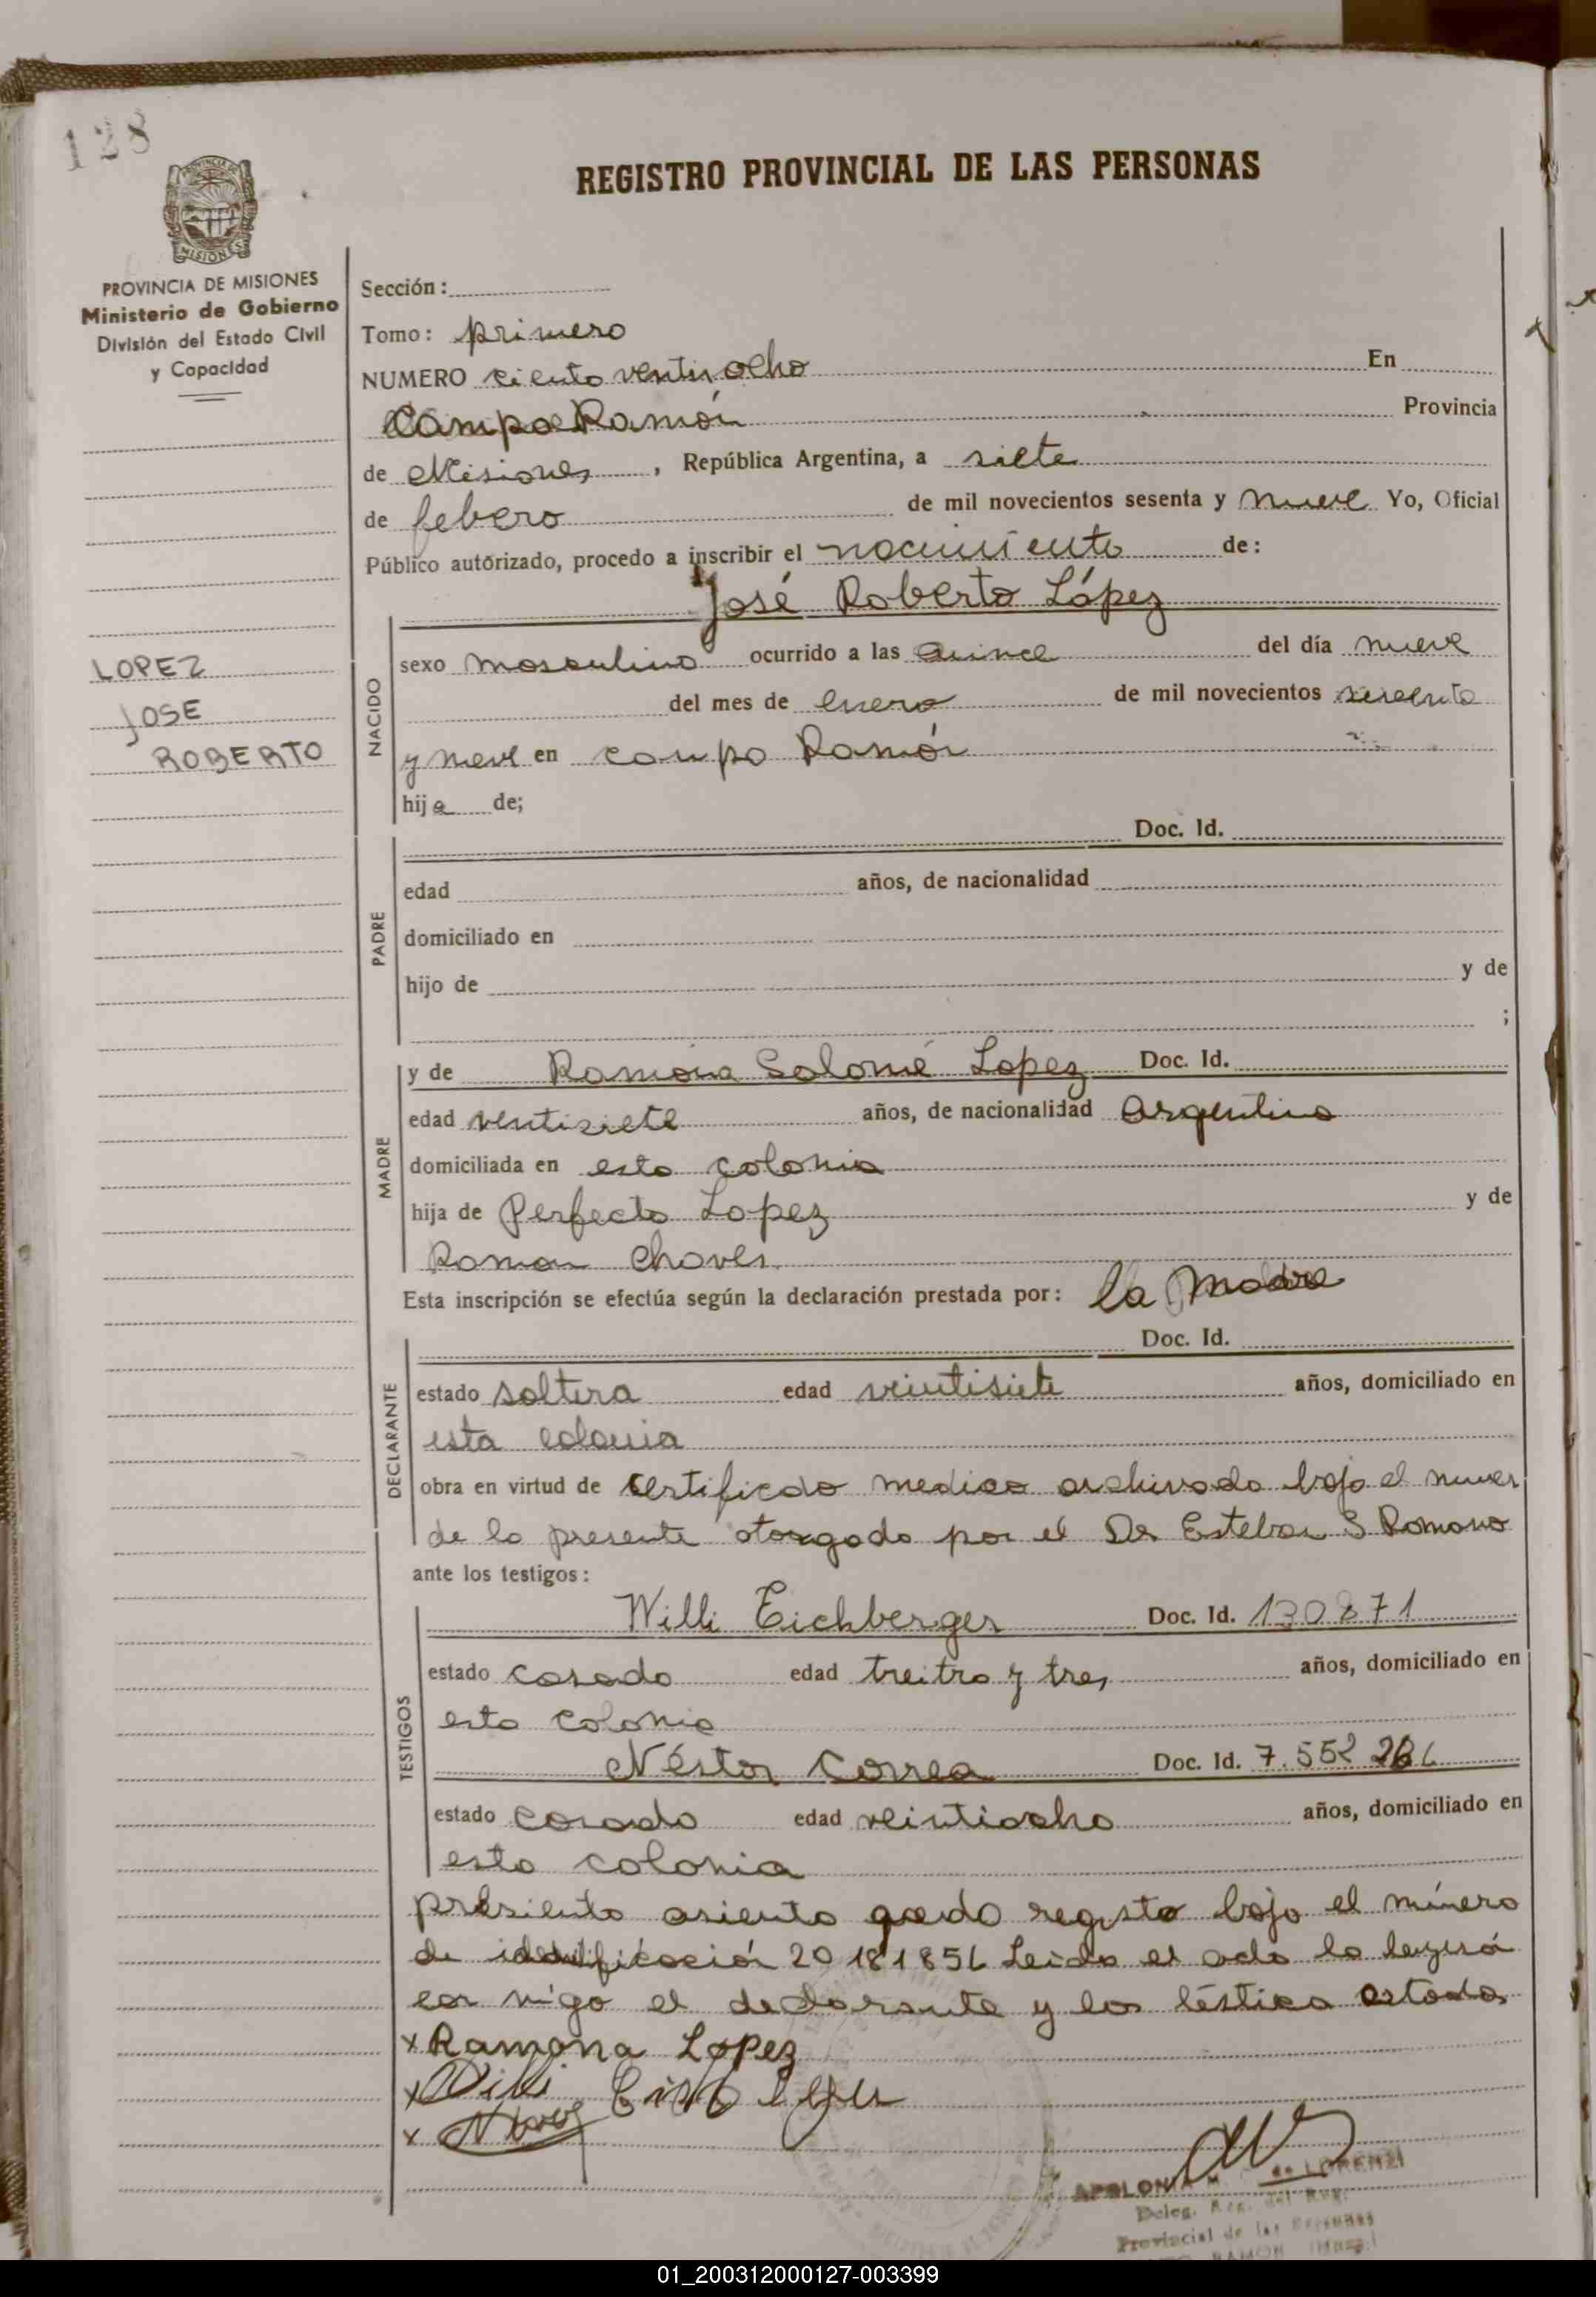 128
REGISTRO PROVINCIAL DE LAS PERSONAS
PROVINCIA DE MISIONES
Ministerio de Gobierno
División del Estado Civil
y Capacidad
LOPEZ
JOSE
ROBERTO
Sección:
Tomo: primero
NUMERO ciento ventiocho En
Campo Ramón Provincia
de Misiones, República Argentina, a siete
de febero de mil novecientos sesenta y nueve Yo, Oficial
Público autorizado, procedo a inscribir el nacimiento de:
José Roberto López
NACIDO
sexo masculino ocurrido a las quince del día nueve
del mes de enero de mil novecientos sesenta
y nueve en campo Ramón
hijo de;
Doc. Id.
PADRE
edad años, de nacionalidad
domiciliado en
hijo de y de
;
MADRE
y de Ramona Salomé Lopez Doc. Id.
edad ventisiete años, de nacionalidad argentina
domiciliada en esta colonia
hija de Perfecto Lopez y de
Roman Chaves
Esta inscripción se efectúa según la declaración prestada por: la madre
Doc. Id.
DECLARANTE
estado soltera edad veintisiete años, domiciliado en
esta colonia
obra en virtud de certificado medico archivado bajo el numer
de la presente otorgado por el Dr Esteban S Romano
ante los testigos:
TESTIGOS
Willi Eichberger Doc. Id. 130871
estado casado edad treitra y tres años, domiciliado en
esta colonia
Néstor Correa Doc. Id. 7.552
estado casado edad veintiocho años, domiciliado en
esta colonia
asiento registo bajo el número
de identificación 20 181856 Leida el acta la
con migo el declarante y los
x Ramona Lopez
x Willi
x
APOLONIA M. de LORENZI
Deleg. del Reg.
Provincial de las Personas
RAMON
01_200312000127-003399